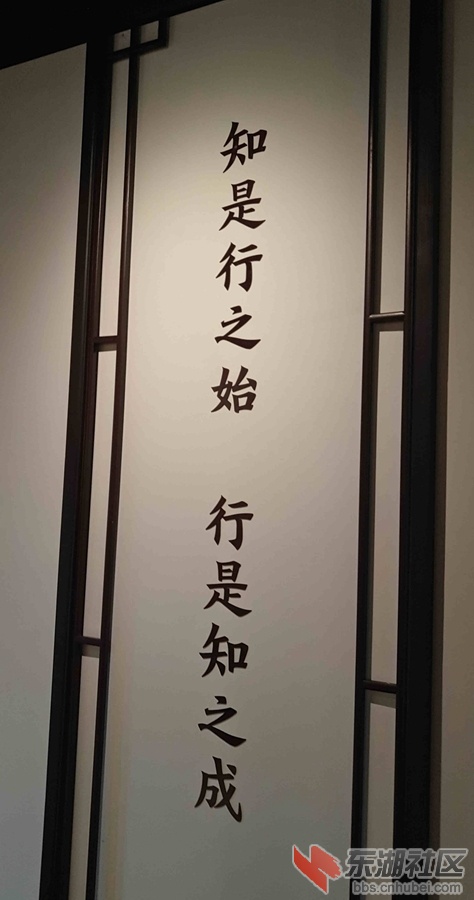 知是行之始 行是知之成
东湖社区
bbs.cnhubei.com